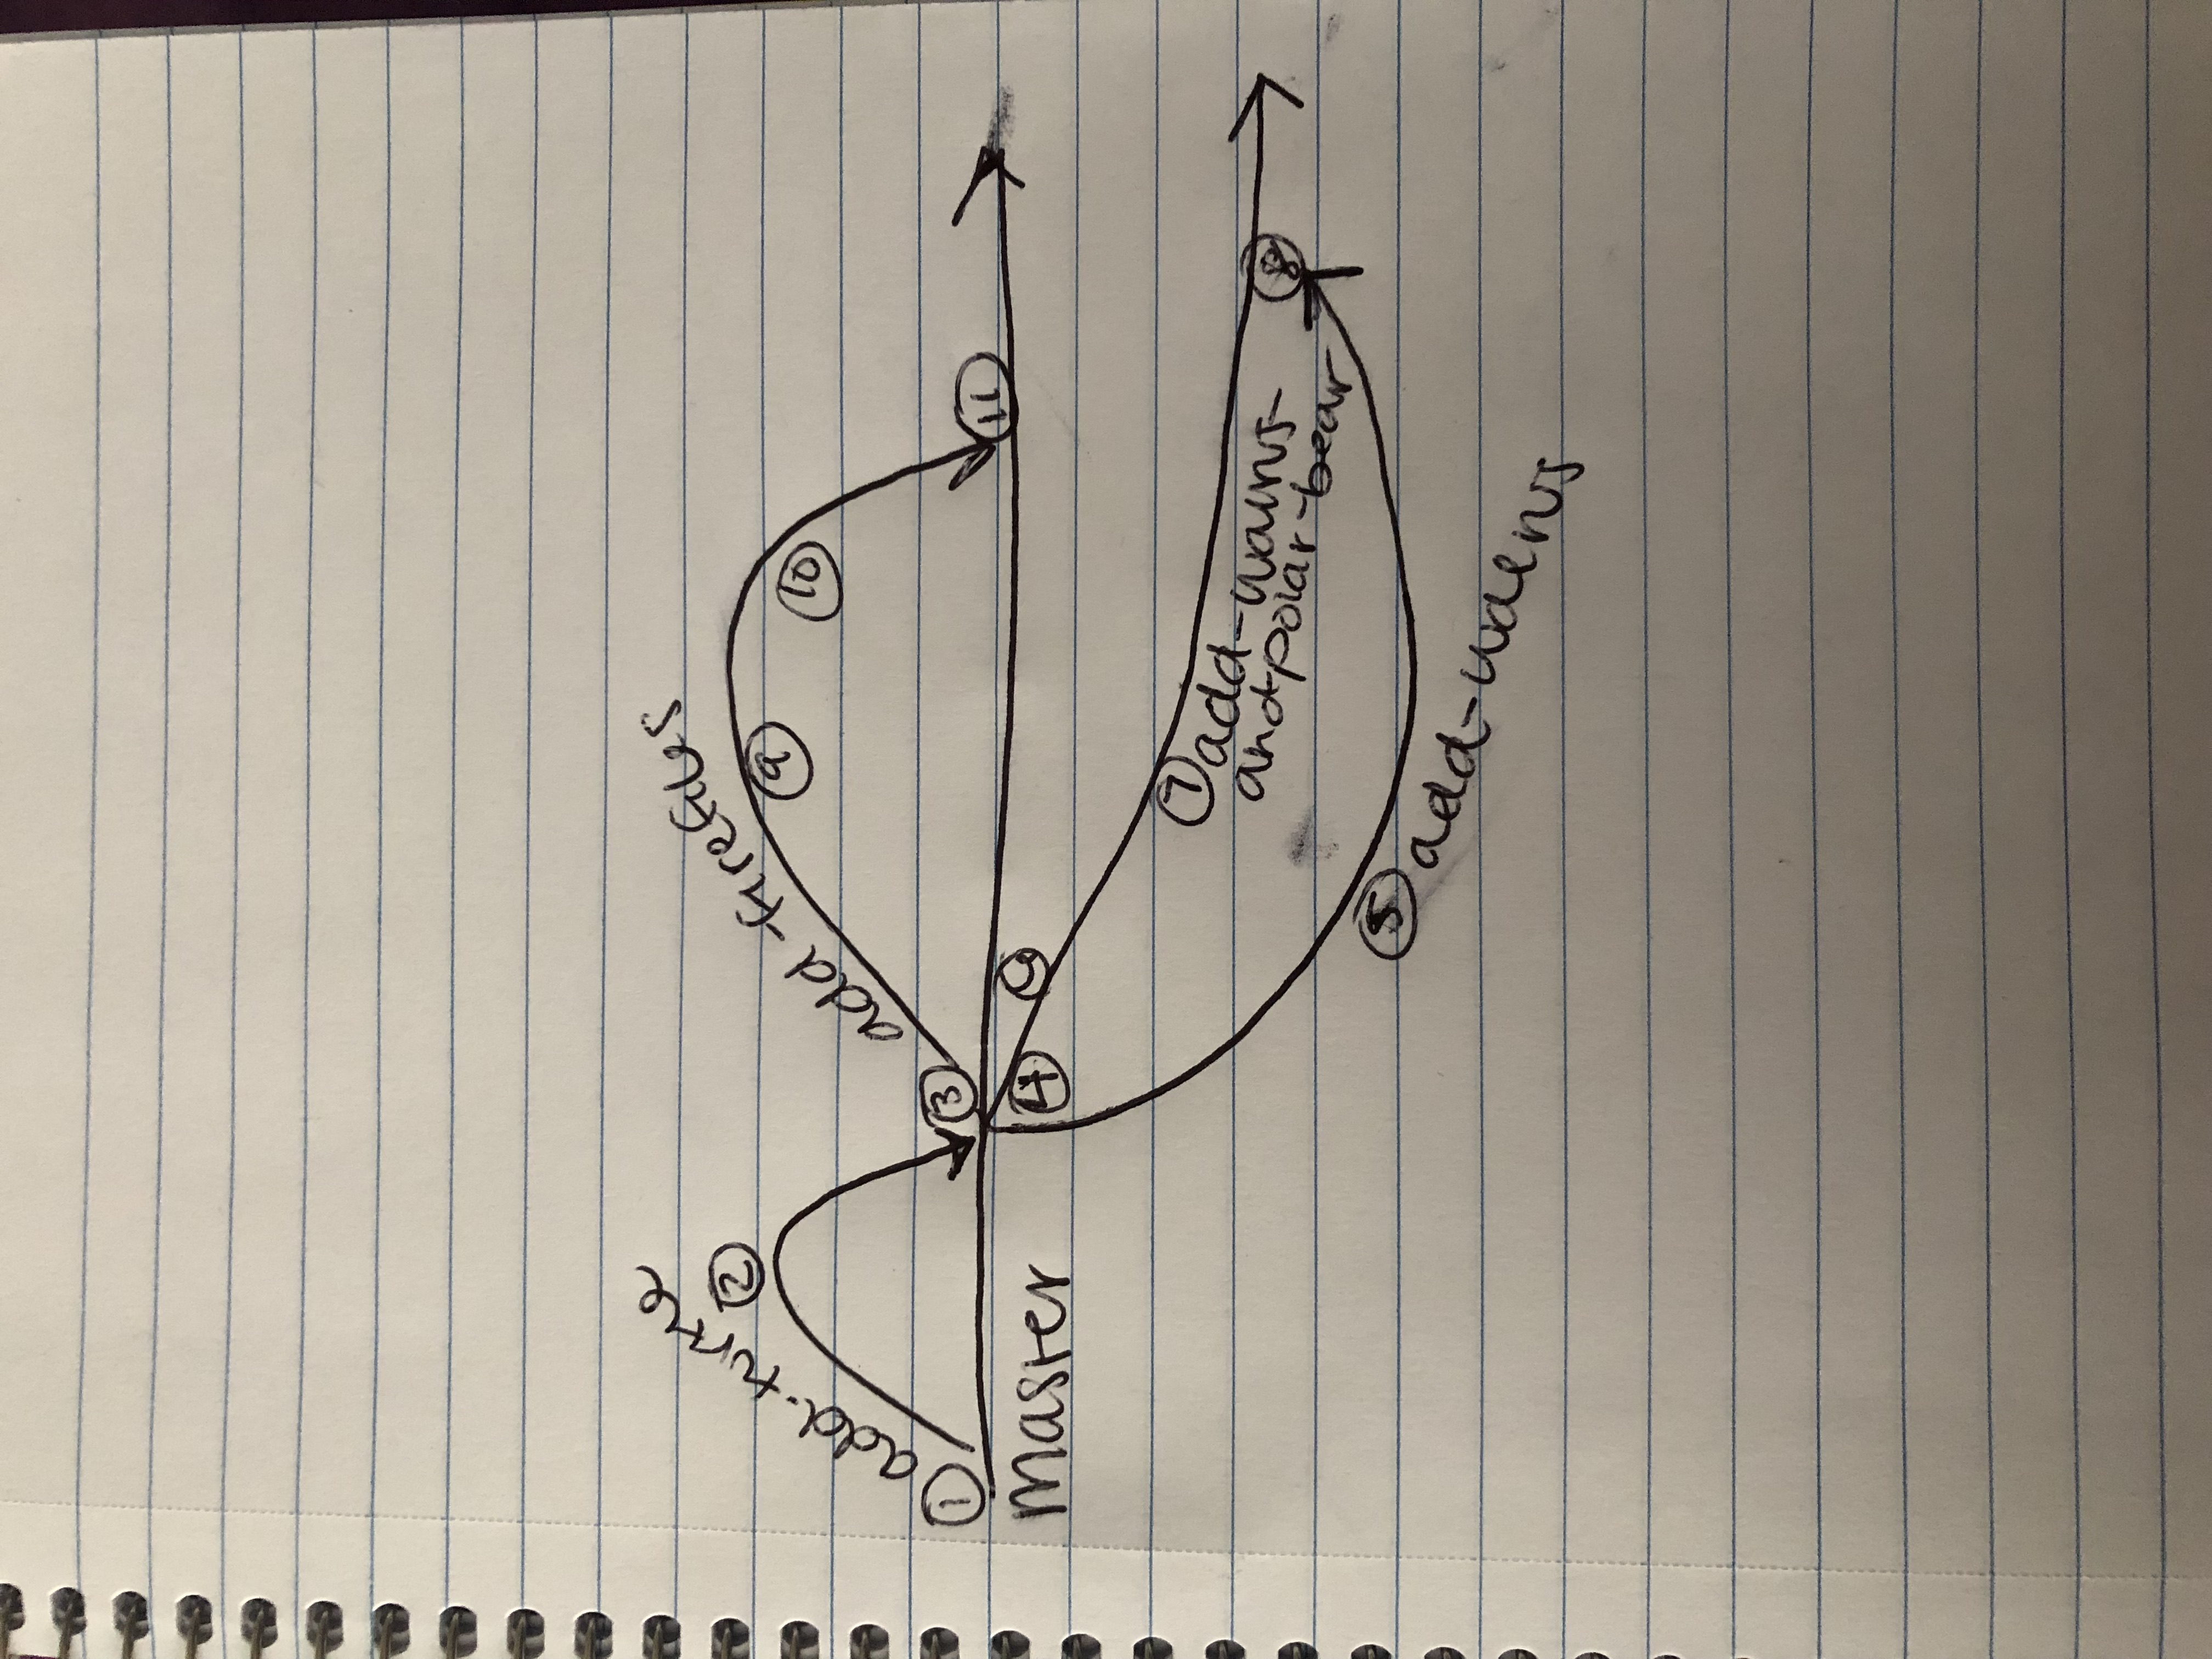 add-turtle
②
add-firefiles
⑨
⑩
①
③
⑪
master
④
⑦ add-walrus-
and-polar-bear
⑧
⑤ add-walrus